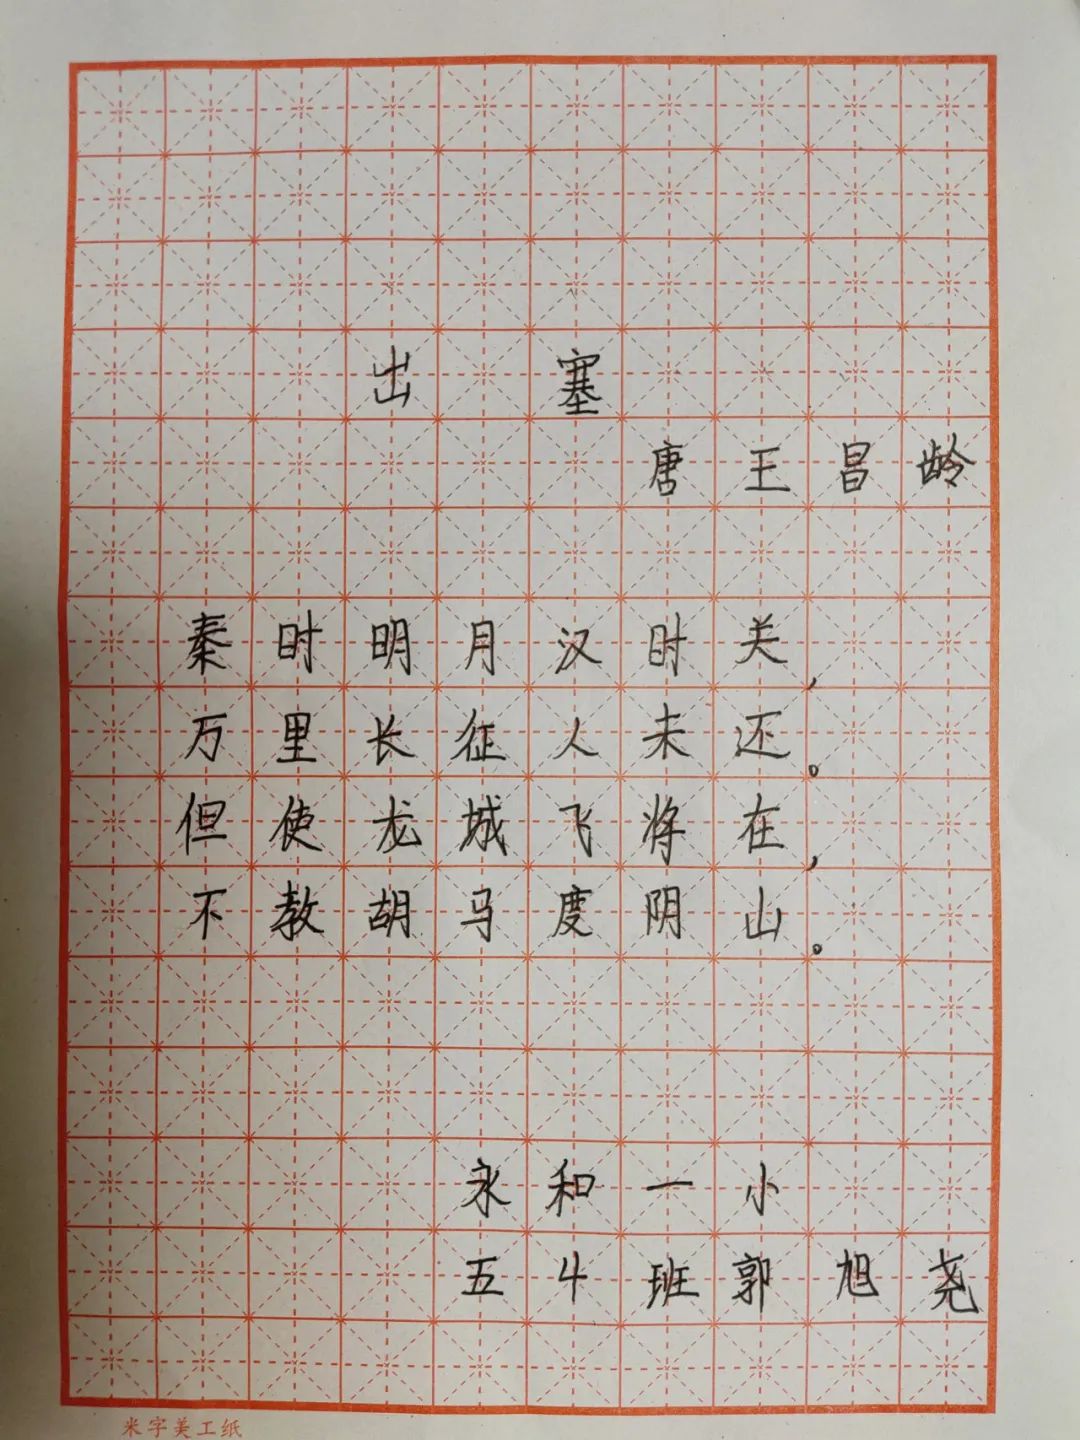 出塞
唐王昌龄
秦时明月汉时关，
万里长征人未还。
但使龙城飞将在，
不教胡马度阴山。
永和一小
五4班郭旭尧
米字美工纸